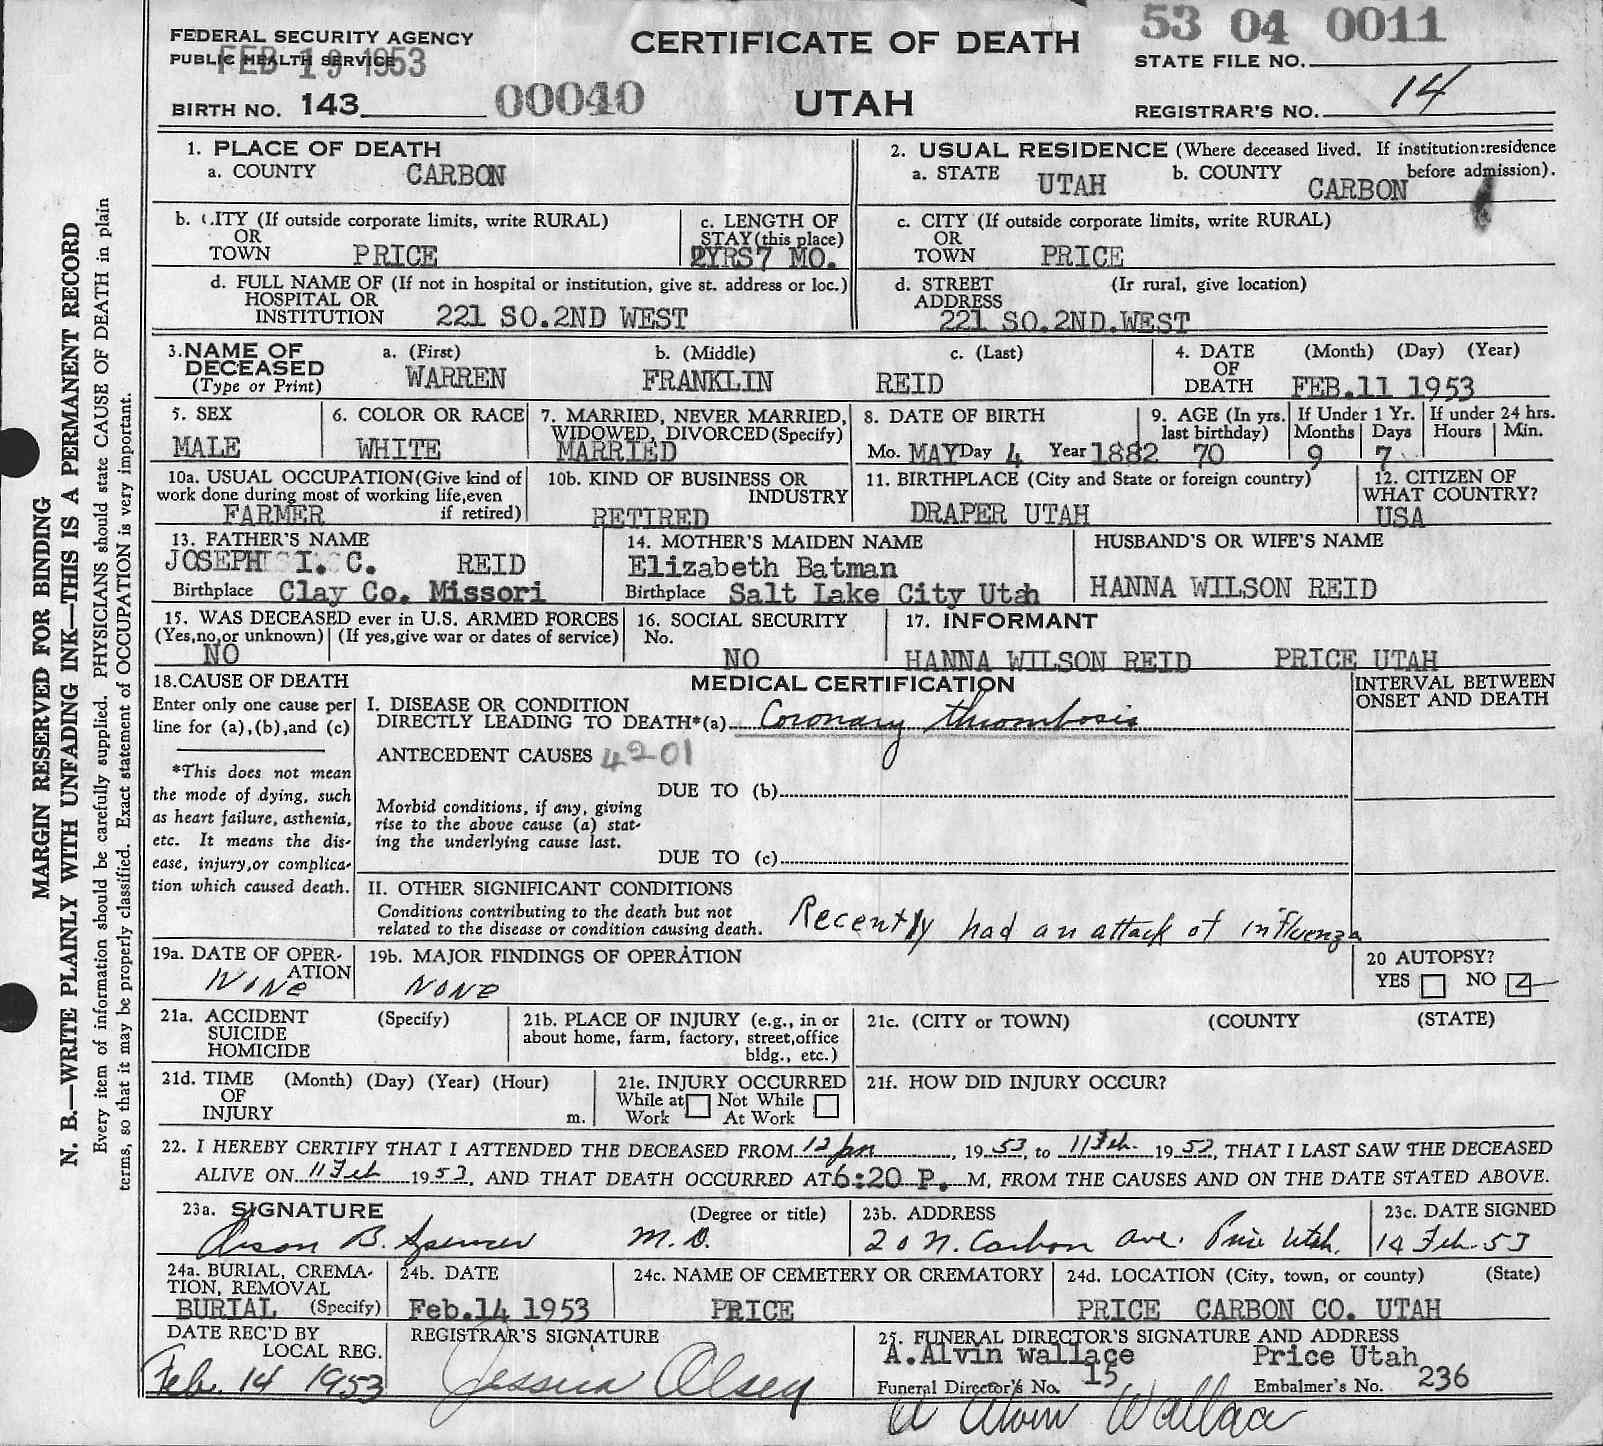 53 04 0011
FEDERAL SECURITY AGENCY
PUBLIC HEALTH SERVICE
FEB 19 1953
CERTIFICATE OF DEATH
STATE FILE NO.
BIRTH NO. 143 00040
UTAH
REGISTRAR'S NO. 14
MARGIN RESERVED FOR BINDING
N. B.—WRITE PLAINLY WITH UNFADING INK—THIS IS A PERMANENT RECORD
Every item of information should be carefully supplied. PHYSICIANS should state CAUSE OF DEATH in plain
terms, so that it may be properly classified. Exact statement of OCCUPATION is very important.
1. PLACE OF DEATH
a. COUNTY CARBON
2. USUAL RESIDENCE (Where deceased lived. If institution:residence
before admission).
a. STATE UTAH b. COUNTY CARBON
b. CITY (If outside corporate limits, write RURAL)
OR
TOWN PRICE
c. LENGTH OF
STAY (this place)
2YRS7 MO.
c. CITY (If outside corporate limits, write RURAL)
OR
TOWN PRICE
d. FULL NAME OF (If not in hospital or institution, give st. address or loc.)
HOSPITAL OR
INSTITUTION 221 SO.2ND WEST
d. STREET (Ir rural, give location)
ADDRESS
221 SO.2ND.WEST
3. NAME OF a. (First) b. (Middle) c. (Last)
DECEASED
(Type or Print) WARREN FRANKLIN REID
4. DATE (Month) (Day) (Year)
OF
DEATH FEB.11 1953
5. SEX
MALE
6. COLOR OR RACE
WHITE
7. MARRIED, NEVER MARRIED,
WIDOWED, DIVORCED (Specify)
MARRIED
8. DATE OF BIRTH
Mo. MAY Day 4 Year 1882
9. AGE (In yrs.
last birthday)
70
If Under 1 Yr.
Months Days
9 7
If under 24 hrs.
Hours Min.
10a. USUAL OCCUPATION (Give kind of
work done during most of working life,even
if retired)
FARMER
10b. KIND OF BUSINESS OR
INDUSTRY
RETIRED
11. BIRTHPLACE (City and State or foreign country)
DRAPER UTAH
12. CITIZEN OF
WHAT COUNTRY?
USA
13. FATHER'S NAME
JOSEPH I. C. REID
Birthplace Clay Co. Missori
14. MOTHER'S MAIDEN NAME
Elizabeth Batman
Birthplace Salt Lake City Utah
HUSBAND'S OR WIFE'S NAME
HANNA WILSON REID
15. WAS DECEASED ever in U.S. ARMED FORCES
(Yes,no,or unknown) (If yes,give war or dates of service)
NO
16. SOCIAL SECURITY
No.
NO
17. INFORMANT
HANNA WILSON REID PRICE UTAH
18. CAUSE OF DEATH
Enter only one cause per
line for (a),(b),and (c)
*This does not mean
the mode of dying, such
as heart failure, asthenia,
etc. It means the dis-
ease, injury,or complica-
tion which caused death.
MEDICAL CERTIFICATION
INTERVAL BETWEEN
ONSET AND DEATH
I. DISEASE OR CONDITION
DIRECTLY LEADING TO DEATH*(a) Coronary thrombosis
ANTECEDENT CAUSES 4201
DUE TO (b)
Morbid conditions, if any, giving
rise to the above cause (a) stat-
ing the underlying cause last.
DUE TO (c)
II. OTHER SIGNIFICANT CONDITIONS
Conditions contributing to the death but not
related to the disease or condition causing death.
Recently had an attack of influenza
19a. DATE OF OPER-
ATION
None
19b. MAJOR FINDINGS OF OPERATION
None
20 AUTOPSY?
YES NO
21a. ACCIDENT (Specify)
SUICIDE
HOMICIDE
21b. PLACE OF INJURY (e.g., in or
about home, farm, factory, street,office
bldg., etc.)
21c. (CITY or TOWN) (COUNTY (STATE)
21d. TIME (Month) (Day) (Year) (Hour)
OF
INJURY m.
21e. INJURY OCCURRED
While at Not While
Work At Work
21f. HOW DID INJURY OCCUR?
22. I HEREBY CERTIFY THAT I ATTENDED THE DECEASED FROM 12 Jan, 1953, to 11 Feb. 1953, THAT I LAST SAW THE DECEASED
ALIVE ON 11 Feb 1953, AND THAT DEATH OCCURRED AT 6:20 P. M, FROM THE CAUSES AND ON THE DATE STATED ABOVE.
23a. SIGNATURE (Degree or title)
Orson B. Spencer M.D.
23b. ADDRESS
20 N. Carbon Ave. Price Utah.
23c. DATE SIGNED
14 Feb. 53
24a. BURIAL, CREMA-
TION, REMOVAL
BURIAL (Specify)
24b. DATE
Feb.14 1953
24c. NAME OF CEMETERY OR CREMATORY
PRICE
24d. LOCATION (City, town, or county) (State)
PRICE CARBON CO. UTAH
DATE REC'D BY
LOCAL REG.
Feb. 14 1953
REGISTRAR'S SIGNATURE
Jessica Olsen
25. FUNERAL DIRECTOR'S SIGNATURE AND ADDRESS
A.Alvin Wallace Price Utah
Funeral Director's No. 15 Embalmer's No. 236
A Alvin Wallace